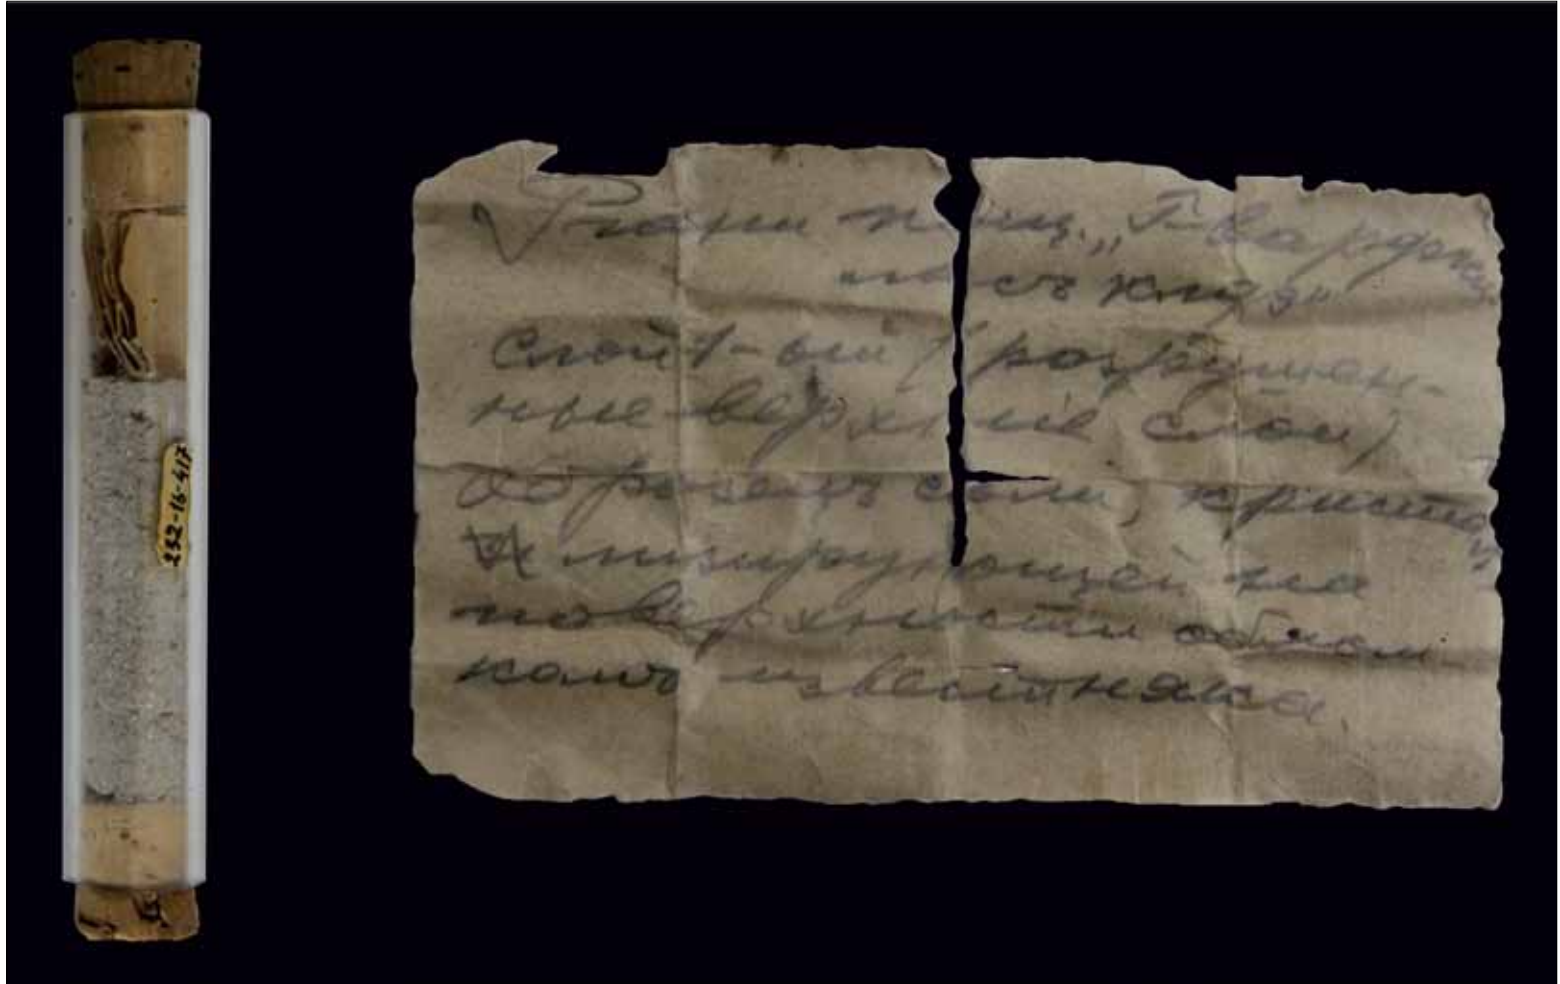 252-16-417
Ргани пещ. „Гварджи
ласъ клдэ"
Слой 1-ый (разрушен-
ные верхние слои)
образецъ соли, кристал
лизирующей на
поверхности облом
ковъ известняка.